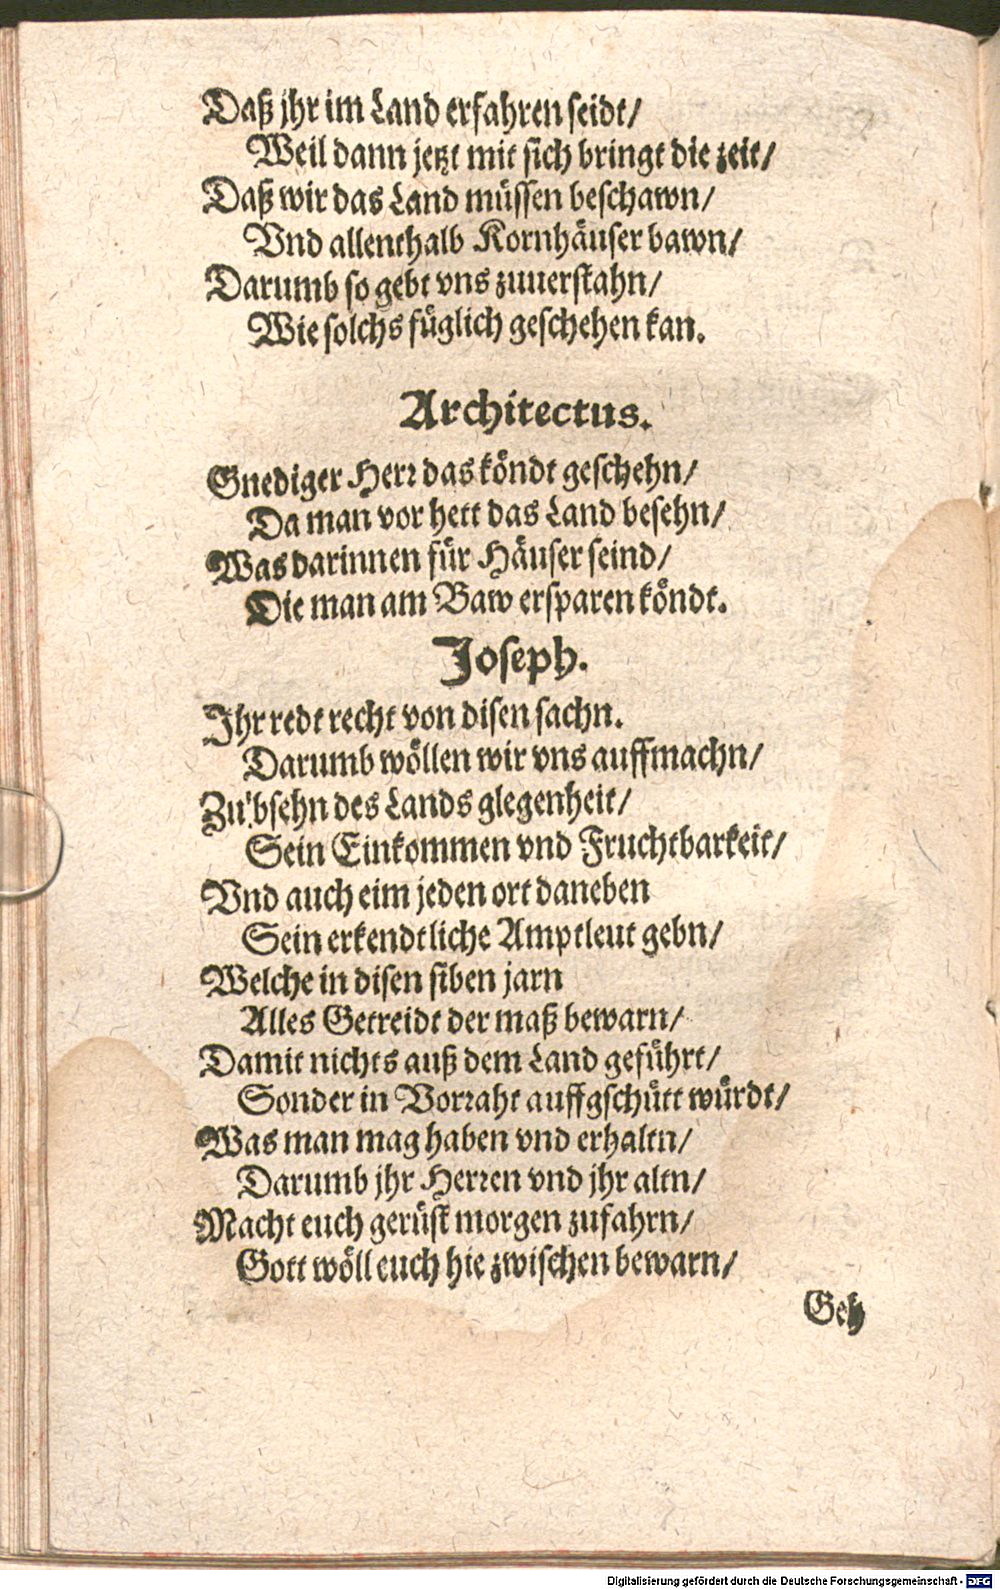 Daß jhr im Land erfahren seidt/
Weil dann jetzt mit sich bringt die zeit/
Daß wir das Land müssen beschawn/
Vnd allenthalb Kornhäuser bawn/
Darumb so gebt vns zuuerstahn/
Wie solchs füglich geschehen kan.
Architectus.
Gnediger Herr das köndt geschehn/
Da man vor hett das Land besehn/
Was darinnen für Häuser seind/
Die man am Baw ersparen köndt.
Joseph.
Ihr redt recht von disen sachn.
Darumb wöllen wir vns auffmachn/
Zu'bsehn des Lands glegenheit/
Sein Einkommen vnd Fruchtbarkeit/
Vnd auch eim jeden ort daneben
Sein erkendtliche Amptleut gebn/
Welche in disen siben jarn
Alles Getreidt der maß bewarn/
Damit nichts auß dem Land geführt/
Sonder in Vorraht auffgschütt würdt/
Was man mag haben vnd erhaltn/
Darumb jhr Herren vnd jhr altn/
Macht euch gerüst morgen zufahrn/
Gott wöll euch hie zwischen bewarn/
Geh
Digitalisierung gefördert durch die Deutsche Forschungsgemeinschaft - DFG